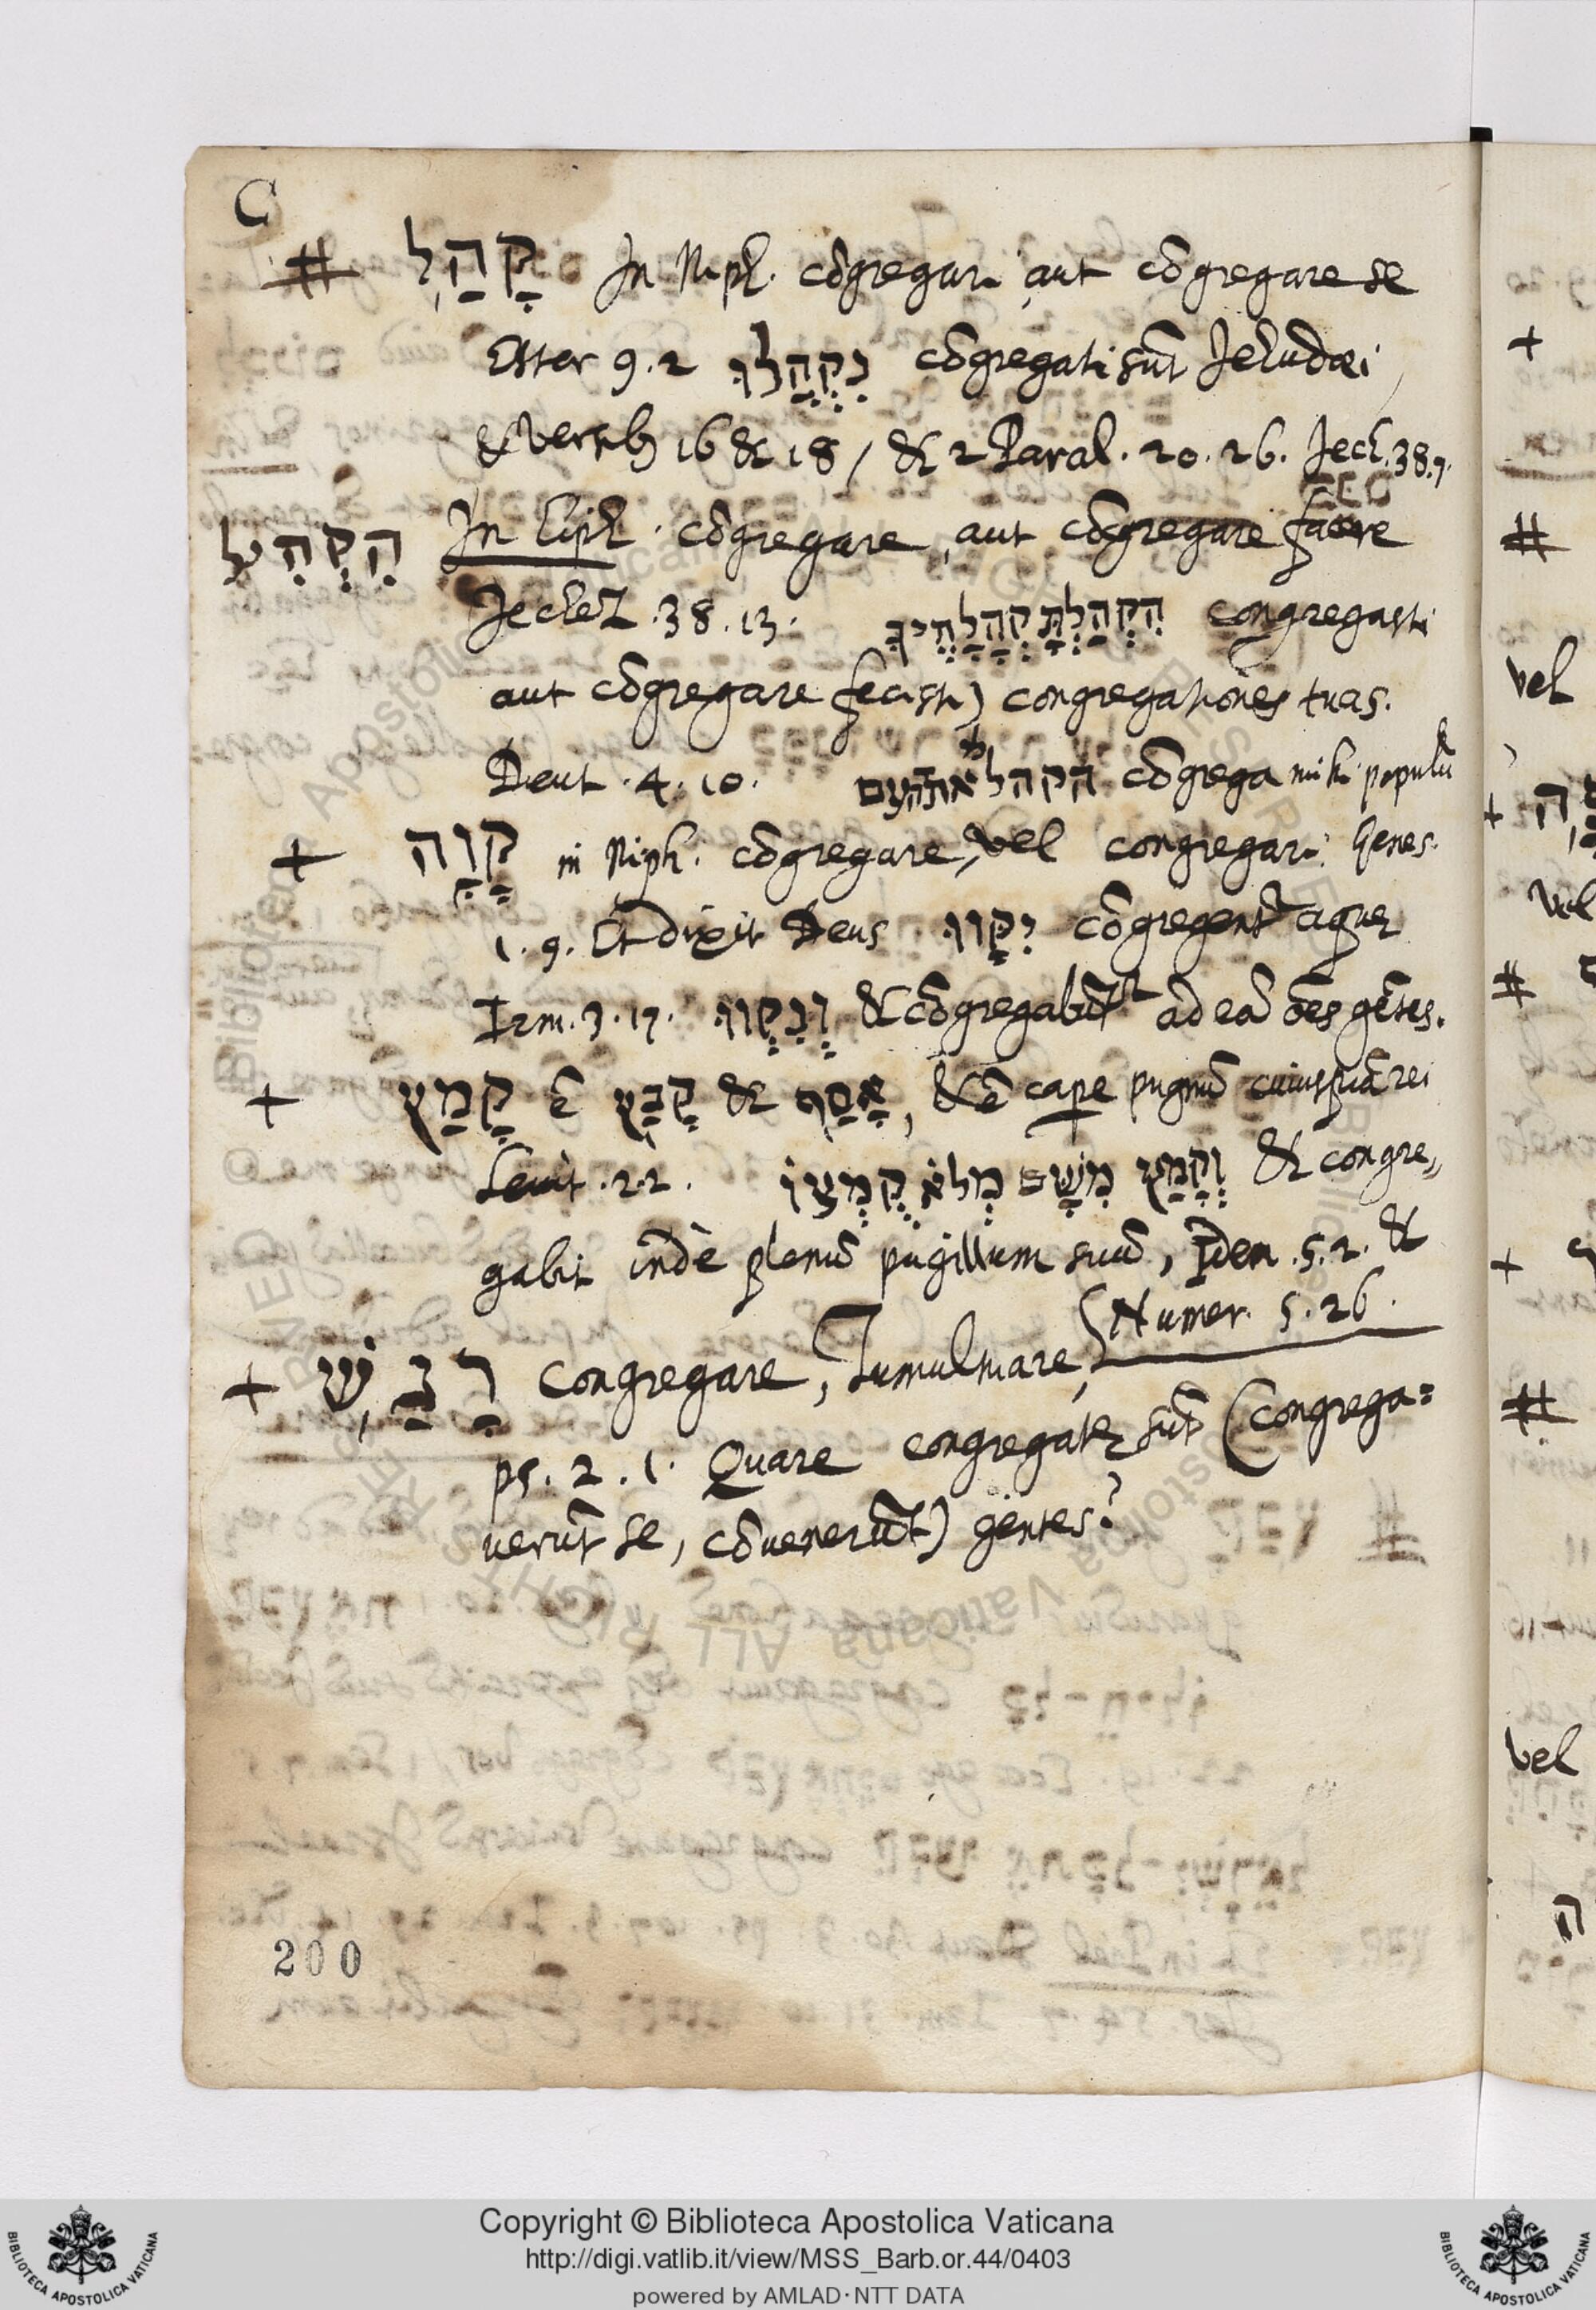 C
# קָהַל In Niph. cōgregari aut cōgregare se
Ester 9.2 נִקְהֲלוּ cōgregati sūt Jehudæi
& versib 16 & 18 / & 2 Paral. 20. 26. Jech. 38.7.
הִקְהִיל In hiph. cōgregare, aut cōgregare facere
Jechez. 38. 13. הִקְהַלְתָּ קְהָלֶךָ congregasti
aut cōgregare fecisti) congregationes tuas.
Deut. 4. 10. הקהל לי את העם cōgrega mihi populū
+ קָוָה in Niph. cōgregare, vel congregari. Genes.
1. 9. Et dixit Deus יִקָּווּ cōgregent aquæ
Irm. 3. 17. וְנִקְווּ & cōgregabūt ad eā ōēs gētes.
+ קָמַץ ē קָבַץ & אָסַף, & ē cape pugnū cuiusquā rei
Levit. 2. 2. וְקָמַץ מִשָּׁם מְלֹא קֻמְצוֹ & congre„
gabit indè plenū pugillum suū, Idem. 5. 2. &
(Numer. 5. 26.
+ רָגַשׁ congregare, Tumultuare,
ps. 2. 1. Quare congregatæ sūt (congrega=
verūt se, cōvenerūt) gentes?
200
+
#
vel
+
vel
#
+
#
vel
Copyright © Biblioteca Apostolica Vaticana
http://digi.vatlib.it/view/MSS_Barb.or.44/0403
powered by AMLAD·NTT DATA
BIBLIOTECA APOSTOLICA VATICANA
BIBLIOTECA APOSTOLICA VATICANA